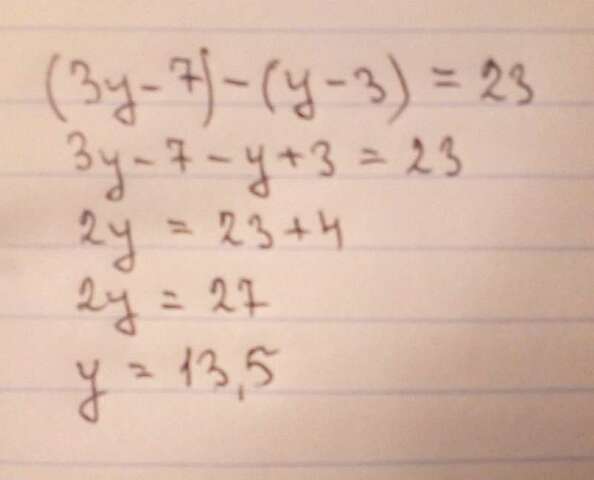 (3y-7)-(y-3)=23
3y-7-y+3=23
2y=23+4
2y=27
y=13,5